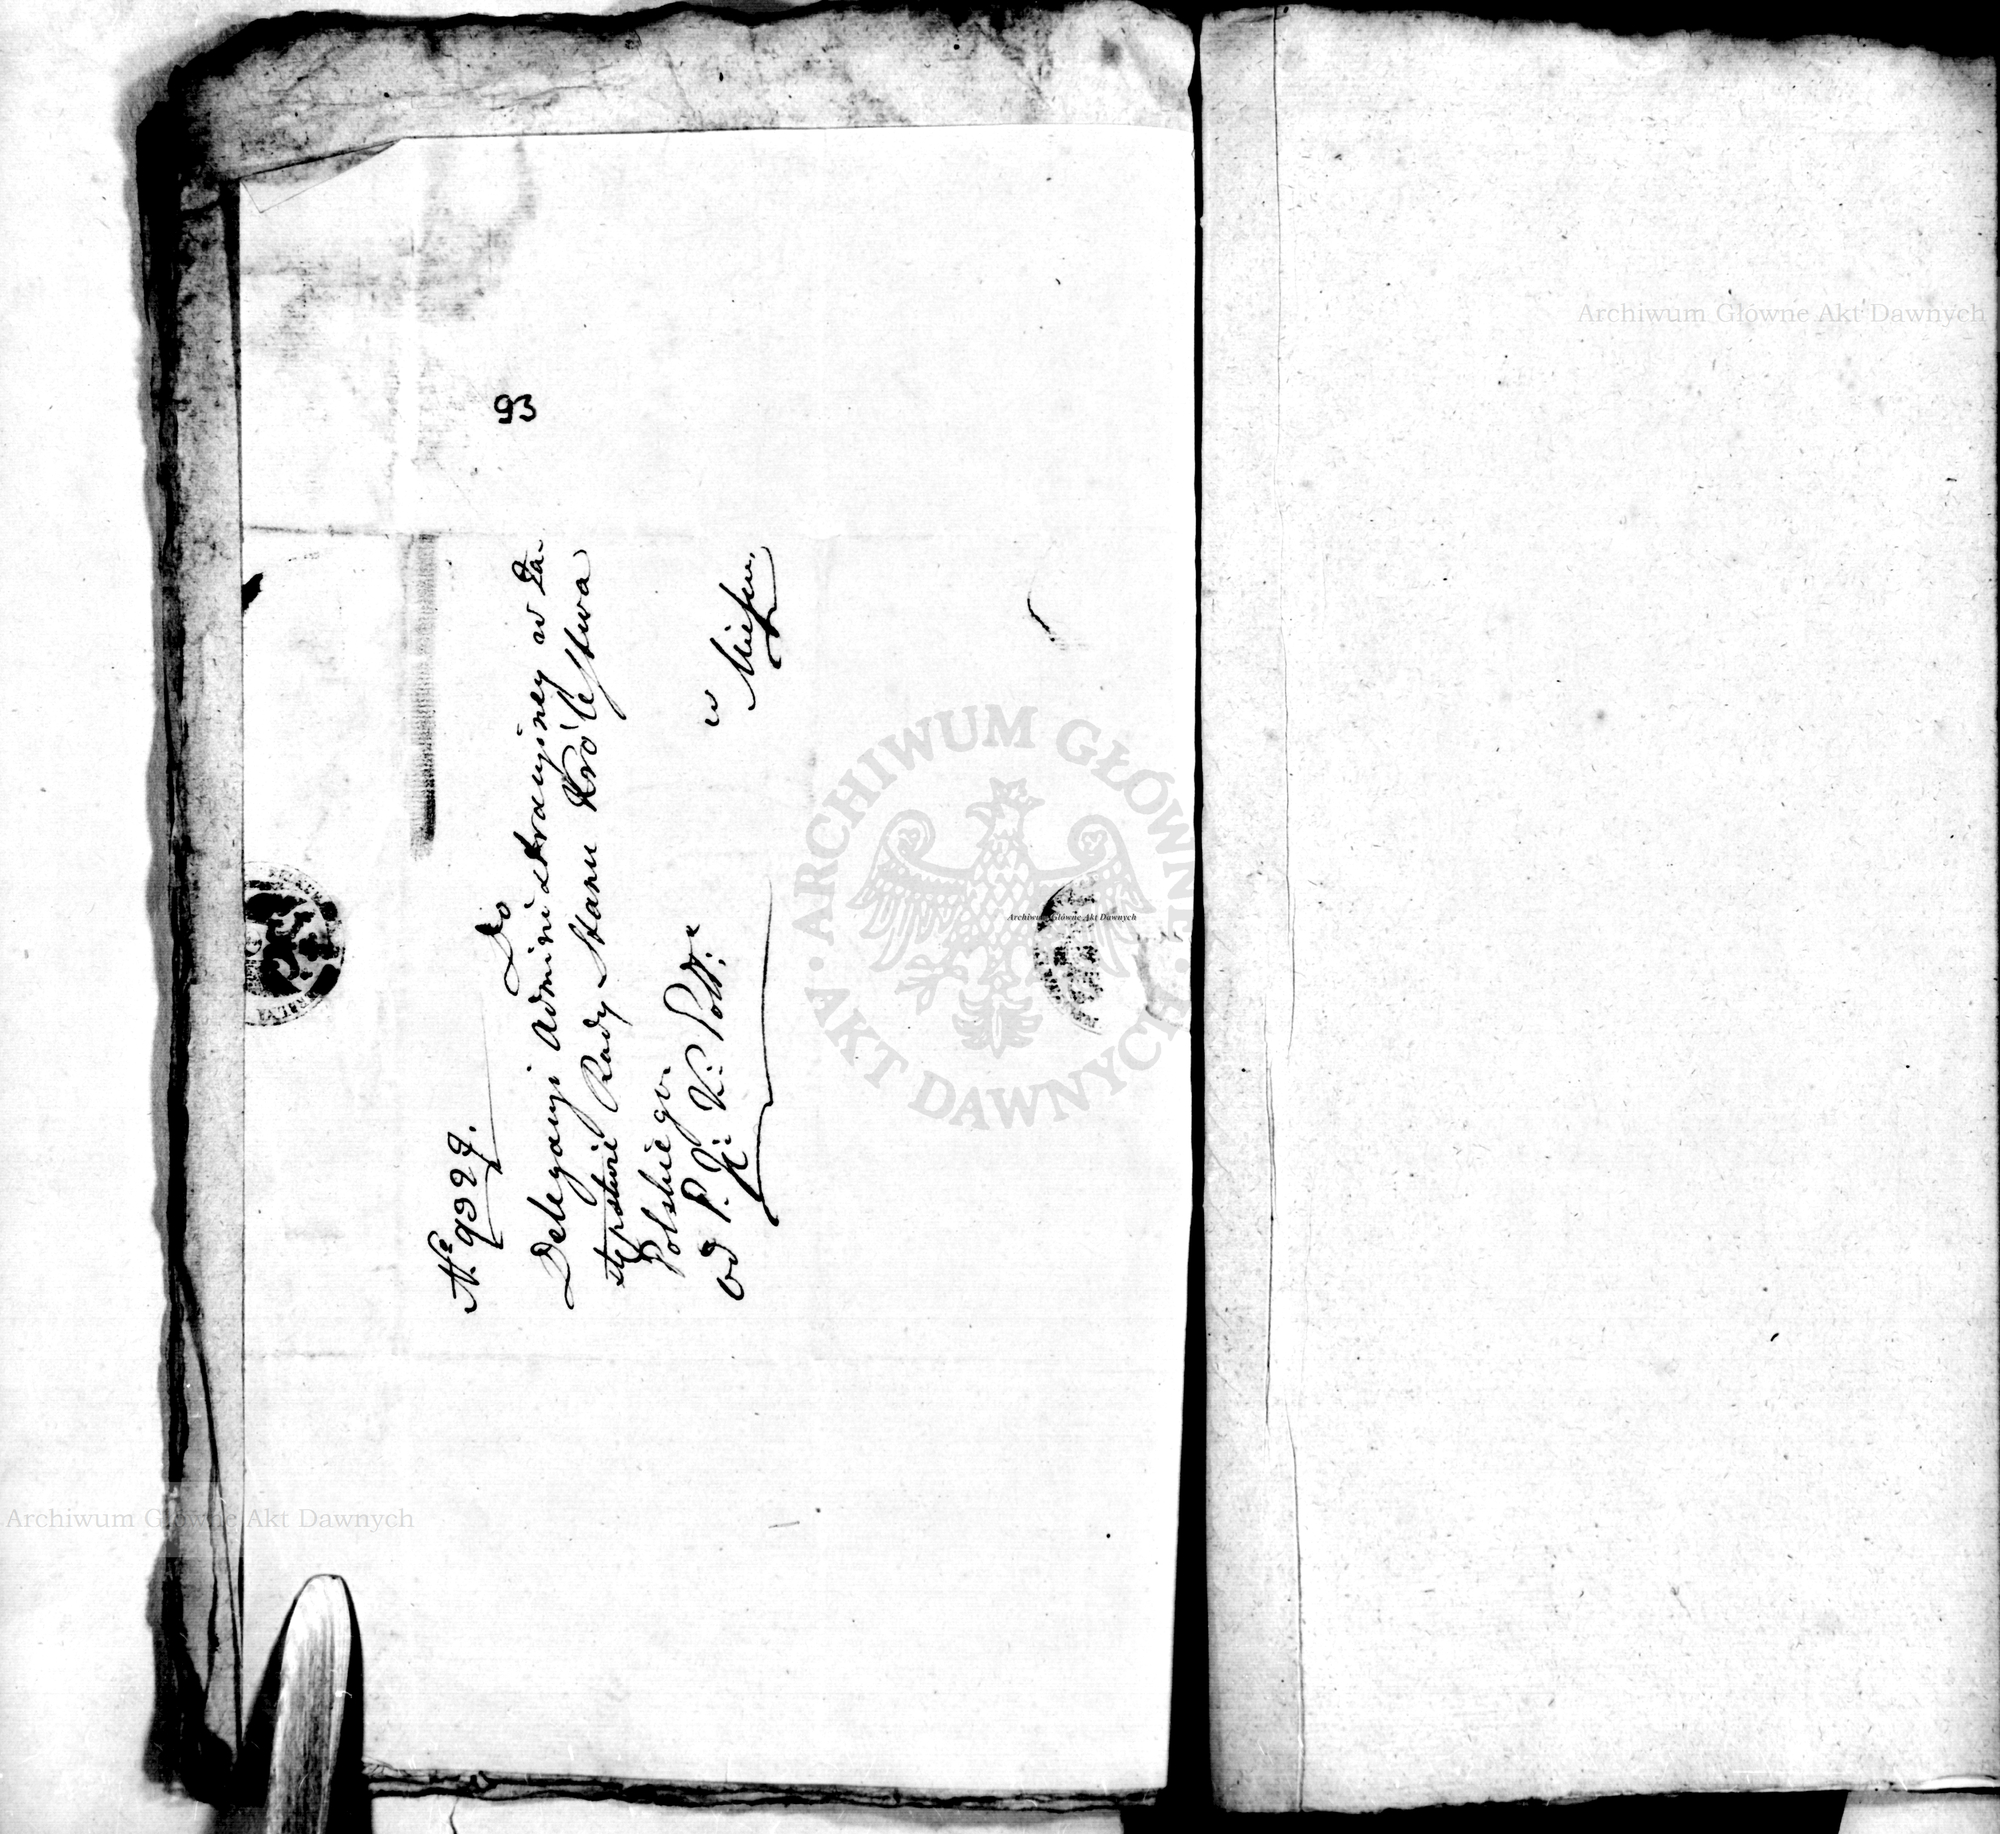 93
No 9329.
Do
Delegacyi Administracyjney w Za-
stępstwie Rady Stanu Królestwa
Polskiego
od P. K: Pol:
w Mieyscu
Archiwum Główne Akt Dawnych
Archiwum Główne Akt Dawnych
Archiwum Główne Akt Dawnych
ARCHIWUM GŁÓWNE
AKT DAWNYCH